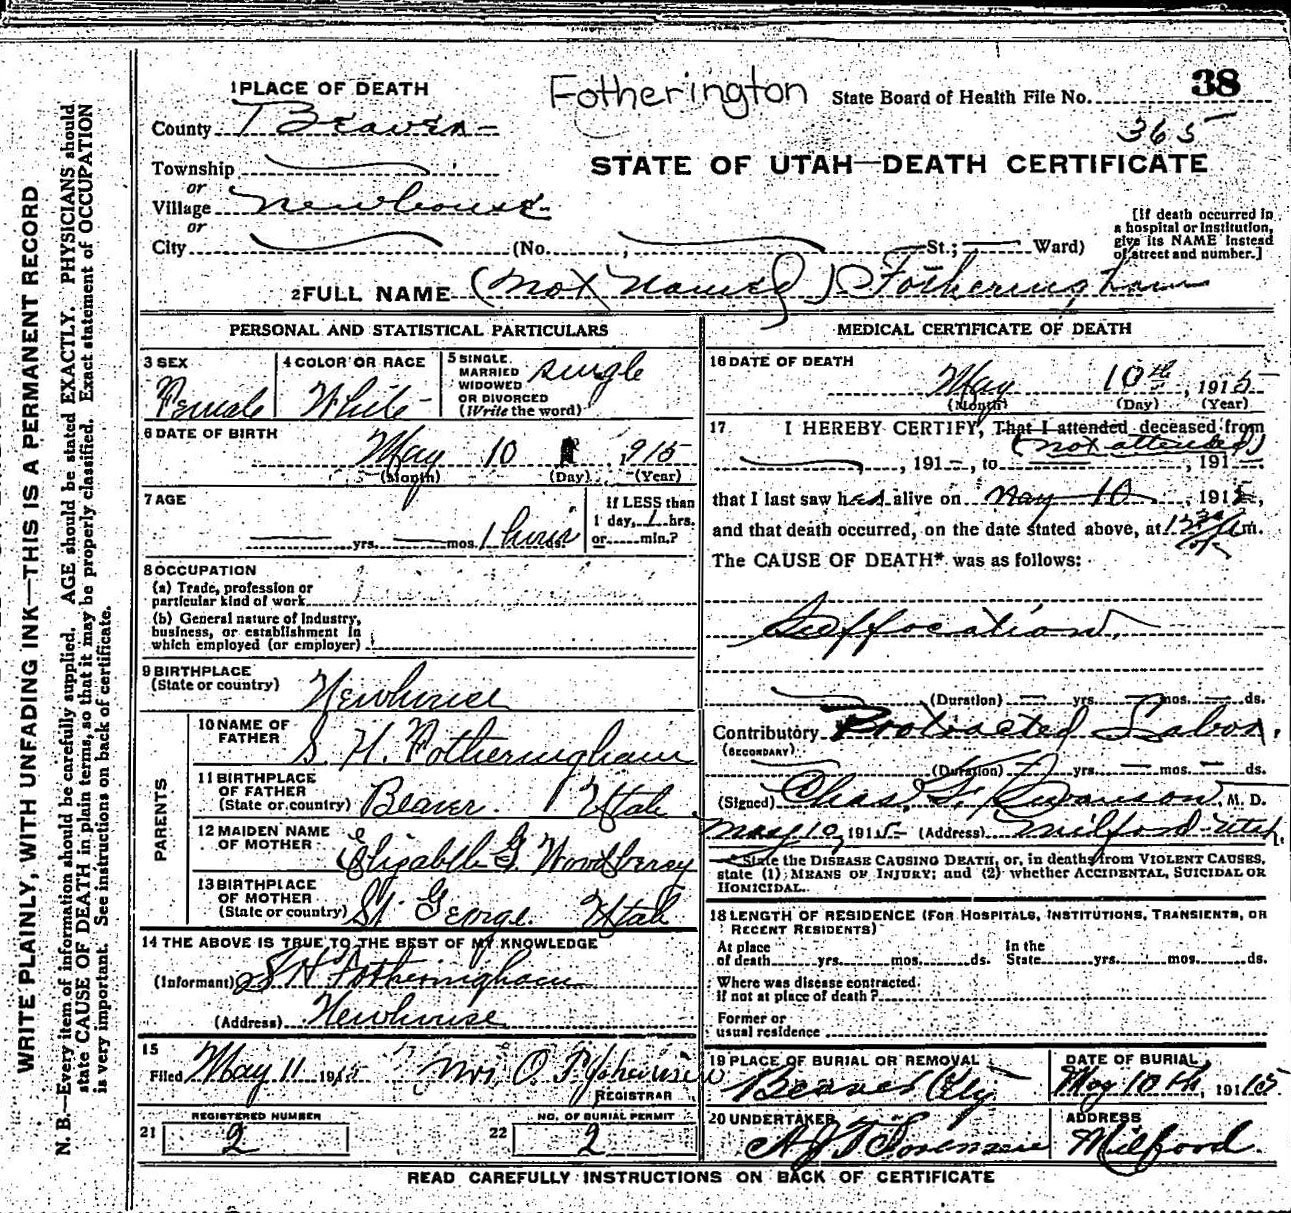 38
1 PLACE OF DEATH Fotherington State Board of Health File No.
365
County Beaver
STATE OF UTAH—DEATH CERTIFICATE
Township
or
Village Newhouse
or
City (No. , St.; Ward)
[If death occurred in a hospital or institution, give its NAME instead of street and number.]
2 FULL NAME (Not Named) Fotheringham
PERSONAL AND STATISTICAL PARTICULARS
3 SEX Female
4 COLOR OR RACE White
5 SINGLE, MARRIED WIDOWED OR DIVORCED (Write the word) single
6 DATE OF BIRTH May 10 1915
(Month) (Day) (Year)
7 AGE yrs. mos. 1 hour ds.
If LESS than 1 day, 1 hrs. or min.?
8 OCCUPATION
(a) Trade, profession or particular kind of work
(b) General nature of Industry, business, or establishment in which employed (or employer)
9 BIRTHPLACE
(State or country) Newhouse
PARENTS
10 NAME OF FATHER S. H. Fotheringham
11 BIRTHPLACE OF FATHER (State or country) Beaver. Utah
12 MAIDEN NAME OF MOTHER Elizabeth G. Woodberry
13 BIRTHPLACE OF MOTHER (State or country) St George. Utah
14 THE ABOVE IS TRUE TO THE BEST OF MY KNOWLEDGE
(Informant) S H Fotheringham
(Address) Newhouse
15
Filed May 11 1915 Mrs. O. P.
REGISTRAR
REGISTERED NUMBER
21 2
NO. OF BURIAL PERMIT
22 2
MEDICAL CERTIFICATE OF DEATH
16 DATE OF DEATH
May 10th, 1915
(Month) (Day) (Year)
17 I HEREBY CERTIFY, That I attended deceased from
(not attended)
, 191 , to , 191
that I last saw her alive on May 10, 1915,
and that death occurred, on the date stated above, at m.
The CAUSE OF DEATH* was as follows:
Suffocation.
(Duration) yrs. mos. ds.
Contributory Protracted Labor.
(SECONDARY)
(Duration) yrs. mos. ds.
(Signed) Chas. M. D.
May 10, 1915 (Address) Milford Utah.
* State the DISEASE CAUSING DEATH, or, in deaths from VIOLENT CAUSES,
state (1) MEANS OF INJURY; and (2) whether ACCIDENTAL, SUICIDAL OR
HOMICIDAL.
18 LENGTH OF RESIDENCE (FOR HOSPITALS, INSTITUTIONS, TRANSIENTS, OR
RECENT RESIDENTS)
At place of death yrs. mos. ds. In the State yrs. mos. ds.
Where was disease contracted
if not at place of death?
Former or
usual residence
19 PLACE OF BURIAL OR REMOVAL Beaver City
DATE OF BURIAL May 10th, 1915
20 UNDERTAKER A J T Sorensen
ADDRESS Milford.
READ CAREFULLY INSTRUCTIONS ON BACK OF CERTIFICATE
WRITE PLAINLY, WITH UNFADING INK—THIS IS A PERMANENT RECORD
N. B.—Every item of information should be carefully supplied. AGE should be stated EXACTLY. PHYSICIANS should
state CAUSE OF DEATH in plain terms, so that it may be properly classified. Exact statement of OCCUPATION
is very important. See instructions on back of certificate.